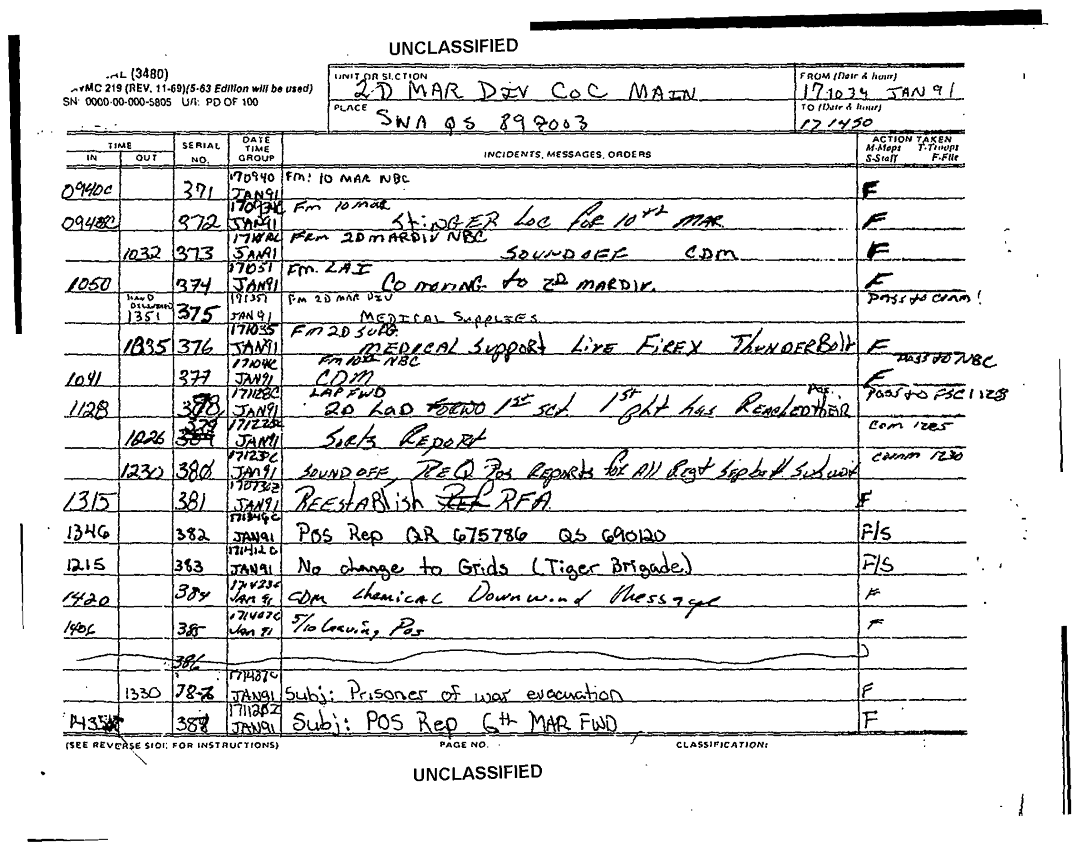 UNCLASSIFIED
(3480)
MC 219 (REV. 11-69)(5-63 Edition will be used)
SN: 0000-00-000-5805 U/I: PD OF 100
UNIT OR SECTION
2D MAR DIV COC MAIN
FROM (Date & hour)
171034 JAN 91
PLACE
SWA QS 897003
TO (Date & hour)
171450
TIME IN OUT SERIAL NO. DATE TIME GROUP INCIDENTS, MESSAGES, ORDERS ACTION TAKEN M-Maps T-Troops S-Staff F-File
0940C 371 170940 JAN91 Fm: 10 MAR NBC F
372 JAN91 Fm 10 mar STINGER Loc for 10th MAR F
1032 373 JAN91 FRM 2D MARDIV NBC SOUNDOFF CDM F
1050 374 171051 JAN91 Fm. LAI Co moving to 2D MARDIV. F
HAND DELIVERED 1351 375 JAN 91 Fm 2D MAR DIV MEDICAL SUPPLIES Pass to comm!
1035 376 171035 JAN91 Fm 2D MEDICAL Support Live FIREX ThunderBolt F
1041 377 JAN91 Fm 10th NBC CDM F Pass to NBC
1128 378 171128C JAN91 LAP FWD 2D LAD 1st sct. 1st has Reached their Pos. Pass to FSC 1128
1226 379 JAN91 Report Com
1230 380 JAN91 SOUNDOFF, REQ Pos Reports for All Regt Sep batt Comm 1230
1315 381 JAN91 REEStABlish RFA F
1346 382 171346C JAN91 Pos Rep QR 675786 QS 690120 F/S
1215 383 JAN91 No change to Grids (Tiger Brigade) F/S
1420 384 Jan 91 CDM Chemical Downwind Message F
1406 385 Jan 91 5/10 leaving Pos F
386
1330 387 JAN91 Subj: Prisoner of war evacuation F
1435 388 JAN91 Subj: POS Rep 6th MAR FWD F
(SEE REVERSE SIDE FOR INSTRUCTIONS) PAGE NO. CLASSIFICATION:
UNCLASSIFIED